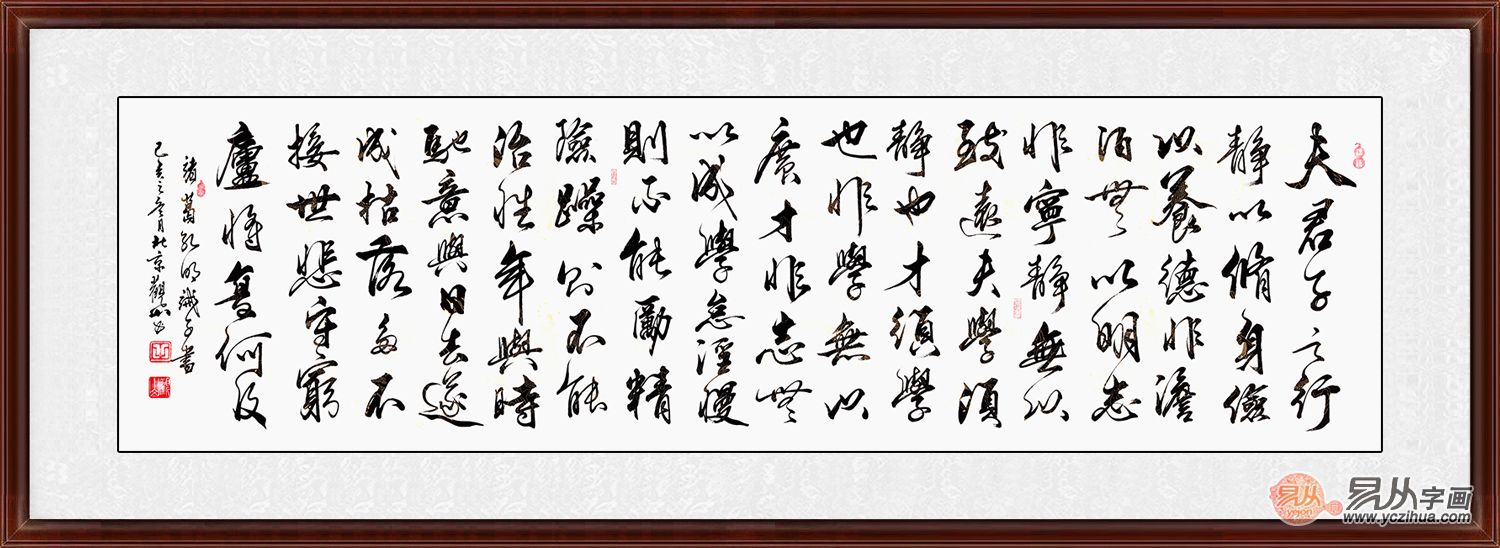 夫君子之行
静以脩身儉
以養德非澹
泊無以明志
非寧静無以
致遠夫學須
静也才須學
也非學無以
廣才非志無
以成學怠淫慢
則不能勵精
險躁則不能
治性年與時
馳意與日去遂
成枯落多不
接世悲守窮
廬將復何及
諸葛孔明誡子書
己亥之冬月北京觀山書
易从
yizijon
易从字画
www.yczihua.com